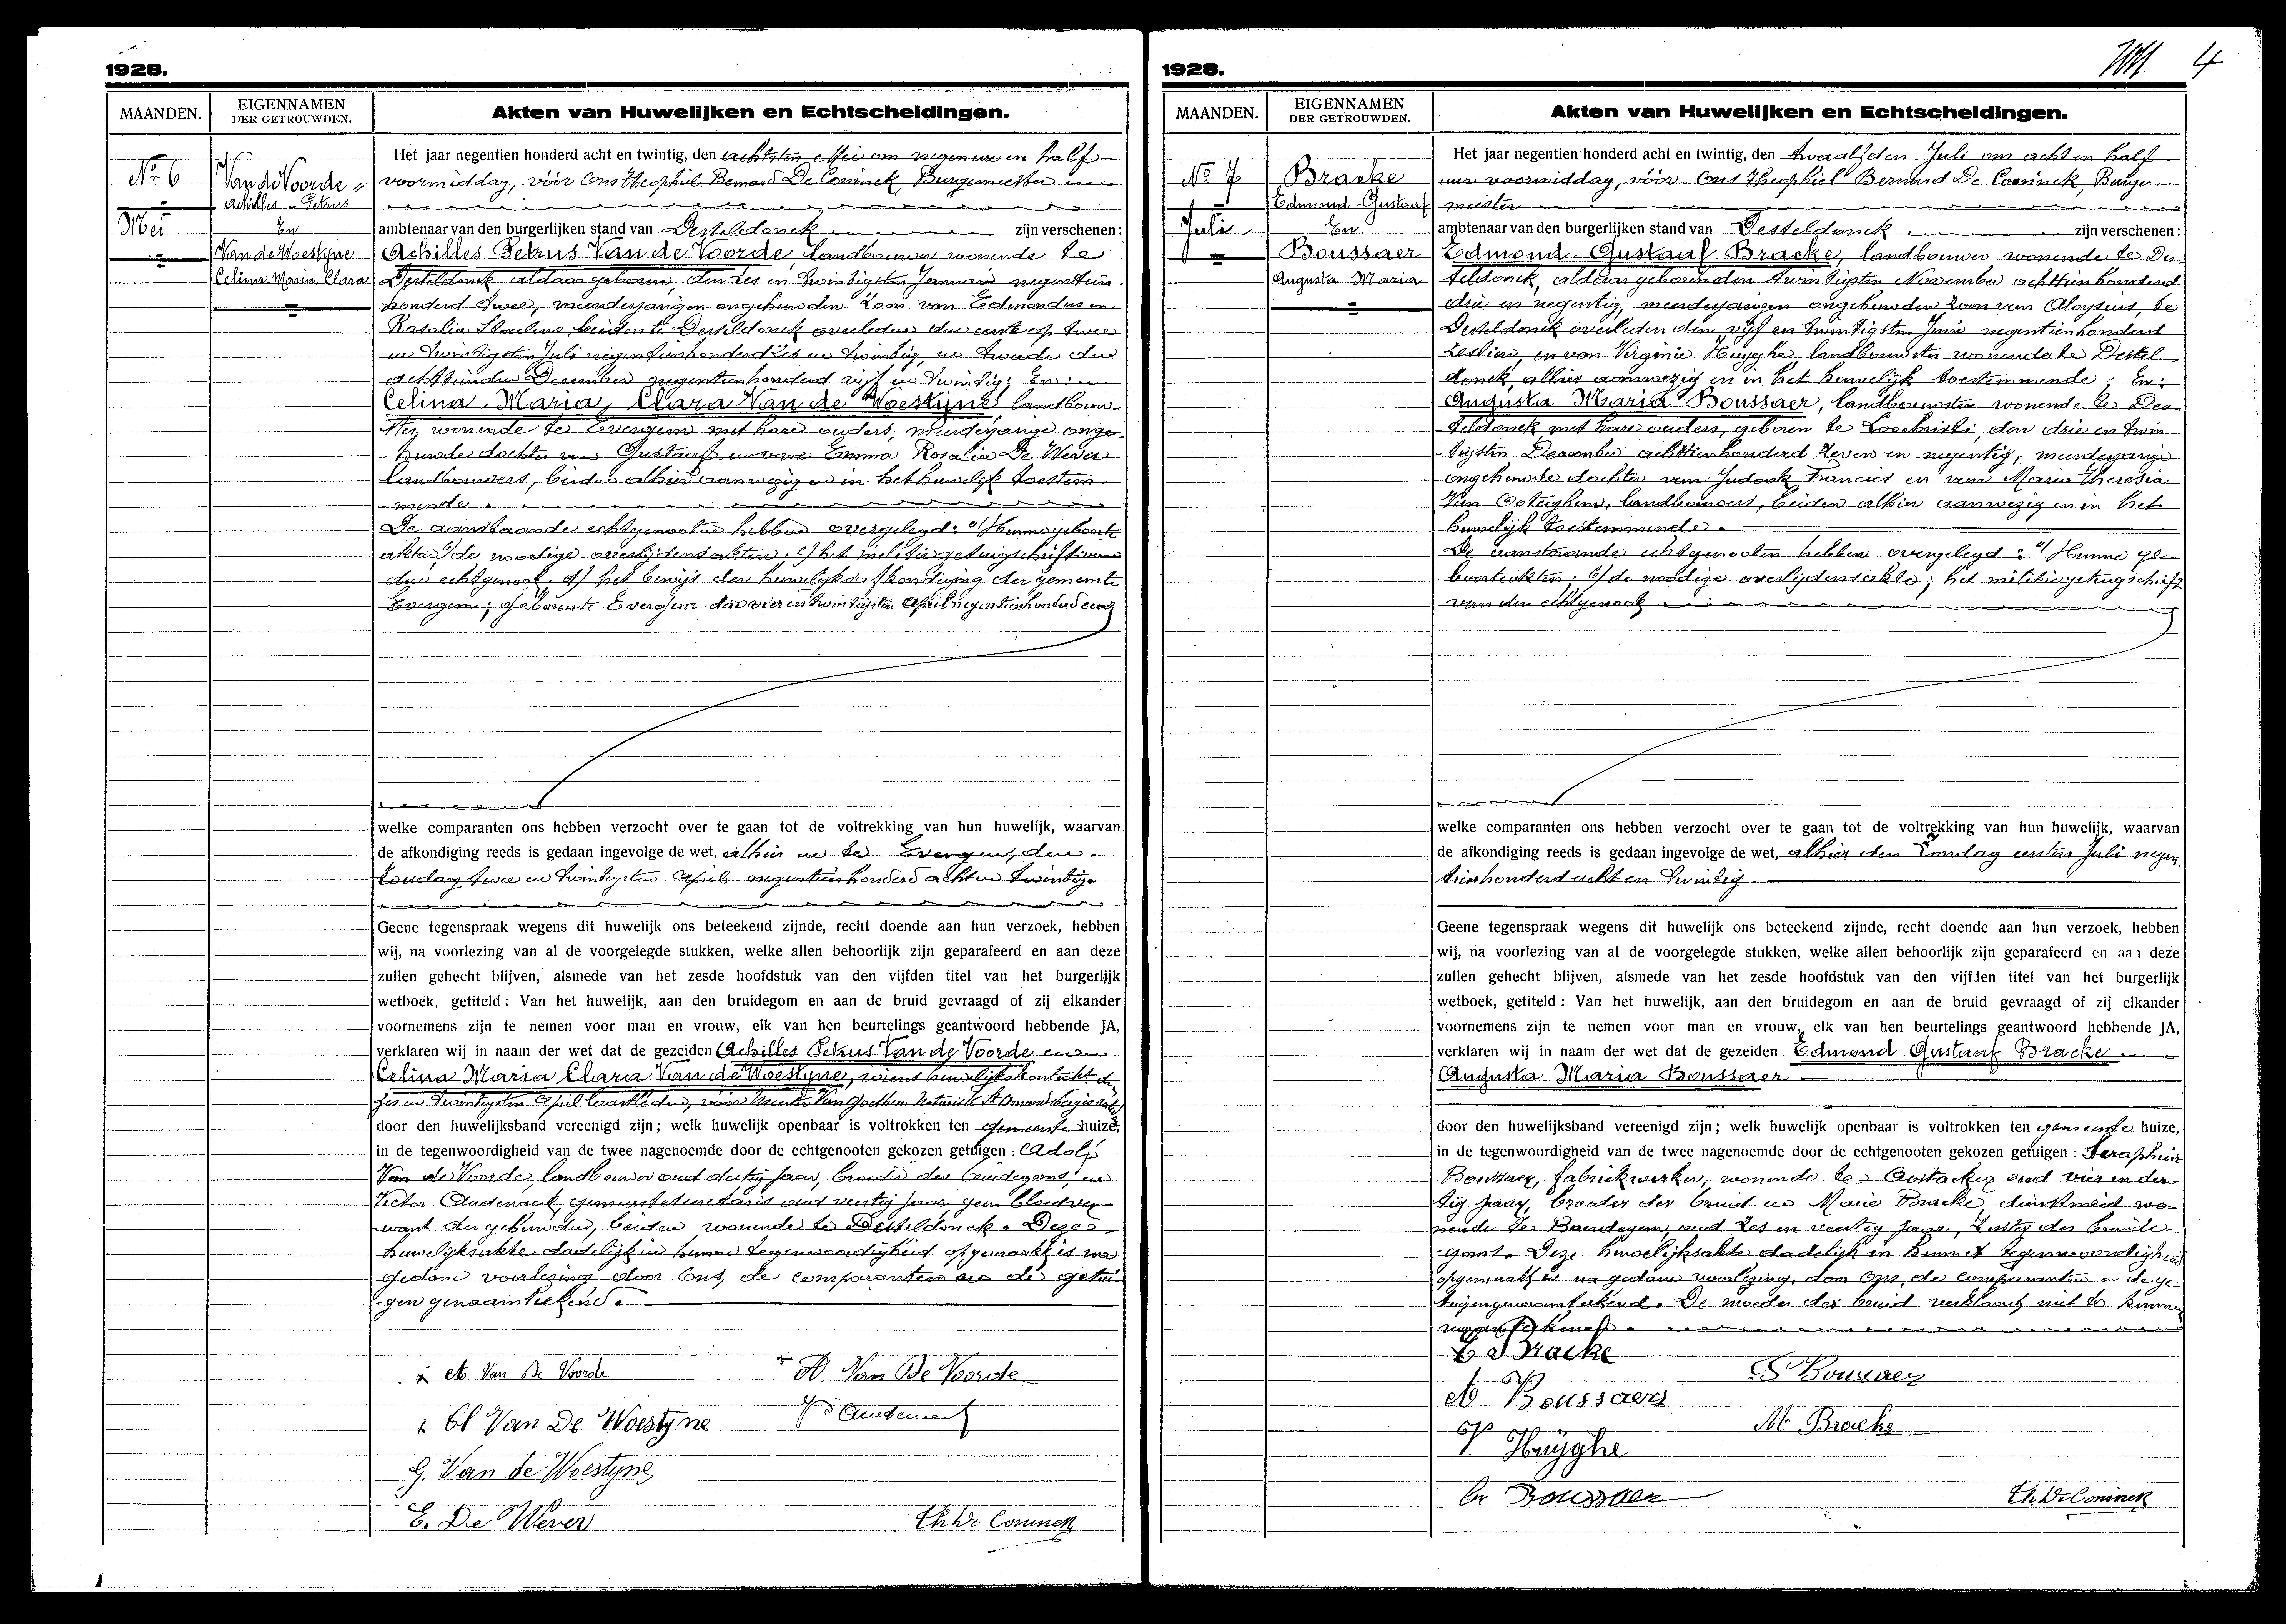 1928.
MAANDEN.
EIGENNAMEN
DER GETROUWDEN.
Akten van Huwelijken en Echtscheidingen.
No 6
Mei
Van de Voorde
Achilles - Petrus
En
Van de Woestyne
Celina Maria Clara
Het jaar negentien honderd acht en twintig, den achtsten Mei om negen ure en half
voormiddag, vóór Ons Theophiel Bernard De Coninck, Burgemeester
ambtenaar van den burgerlijken stand van Desteldonck zijn verschenen:
Achilles Petrus Van de Voorde, landbouwer wonende te
Desteldonck aldaar geboren, den zes en twintigsten Januari negentien
honderd twee, meerderjarigen ongehuwden zoon van Edmondus en
Rosalia Staelens, beiden te Desteldonck overleden den eerste op twee
en twintigsten Juli negentienhonderd zes en twintig, en tweede den
achttienden December negentienhonderd vijf en twintig; En:
Celina, Maria, Clara Van de Woestijne landbouw-
ster, wonende te Evergem met hare ouders, meerderjarige onge-
huwde dochter van Gustaaf en van Emma Rosalia De Wever
landbouwers, beiden alhier aanwezig en in het huwelijk toestem-
mende.
De aanstaande echtgenooten hebben overgelegd: a/ Hunne geboorte
akten, b/ de noodige overlijdensakten, c/ het militie getuigschrift van
den echtgenoot, d/ het bewijs der huwelijksafkondiging der gemeente
Evergem; geboren te Evergem den vier en twintigsten April negentienhonderd een
welke comparanten ons hebben verzocht over te gaan tot de voltrekking van hun huwelijk, waarvan
de afkondiging reeds is gedaan ingevolge de wet, alhier en te Evergem, den
Zondag twee en twintigsten April negentienhonderd acht en twintig.
Geene tegenspraak wegens dit huwelijk ons beteekend zijnde, recht doende aan hun verzoek, hebben
wij, na voorlezing van al de voorgelegde stukken, welke allen behoorlijk zijn geparafeerd en aan deze
zullen gehecht blijven, alsmede van het zesde hoofdstuk van den vijfden titel van het burgerlijk
wetboek, getiteld: Van het huwelijk, aan den bruidegom en aan de bruid gevraagd of zij elkander
voornemens zijn te nemen voor man en vrouw, elk van hen beurtelings geantwoord hebbende JA,
verklaren wij in naam der wet dat de gezeiden Achilles Petrus Van de Voorde en
Celina Maria Clara Van de Woestyne, wiens huwelijkskontrakt den
zes en twintigsten April laastleden, vóór Meester Van Goethem Notaris te St Amandsberg is
door den huwelijksband vereenigd zijn; welk huwelijk openbaar is voltrokken ten gemeente huize,
in de tegenwoordigheid van de twee nagenoemde door de echtgenooten gekozen getuigen: Adolf
Van de Voorde, landbouwer oud dertig jaar, broeder des bruidegoms, en
Victor Audenaert, gemeentesecretaris oud veertig jaar, geen bloedver-
want der gehuwden, beiden wonende te Desteldonck. Deze
huwelijksakte dadelijk in hunne tegenwoordigheid opgemaakt is na
gedane voorlezing door Ons, de comparanten en de getui-
gen genaamteekend.
A Van De Voorde
A. Van De Voorde
Cl Van De Woestyne
V Audenaert
G Van de Woestyne
E. De Wever
Th De Coninck
1928.
4
MAANDEN.
EIGENNAMEN
DER GETROUWDEN.
Akten van Huwelijken en Echtscheidingen.
No 7
Juli
Bracke
Edmond - Gustaaf
En
Boussaer
Augusta Maria
Het jaar negentien honderd acht en twintig, den twaalfden Juli om acht en half
uur voormiddag, vóór Ons Theophiel Bernard De Coninck, Burge-
meester
ambtenaar van den burgerlijken stand van Desteldonck zijn verschenen:
Edmond - Gustaaf Bracke, landbouwer wonende te Des-
teldonck, aldaar geboren den twintigsten November achttienhonderd
drie en negentig, meerderjarigen ongehuwden zoon van Aloysius, te
Desteldonck overleden den vijf en twintigsten Juni negentienhonderd
zestien, en van Virginie Huyghe, landbouwster wonende te Destel-
donck, alhier aanwezig en in het huwelijk toestemmende; En:
Augusta Maria Boussaer, landbouwster wonende te Des-
teldonck met hare ouders, geboren te Loochristi, den drie en twin-
tigsten December achttienhonderd zeven en negentig, meerderjarige
ongehuwde dochter van Judock Francies en van Maria Theresia
Van Ooteghem, landbouwers, beiden alhier aanwezig en in het
huwelijk toestemmende.
De aanstaande echtgenooten hebben overgelegd: a/ Hunne ge-
boorteakten; b/ de noodige overlijdensakte; het militiegetuigschrift
van den echtgenoot
welke comparanten ons hebben verzocht over te gaan tot de voltrekking van hun huwelijk, waarvan
de afkondiging reeds is gedaan ingevolge de wet, alhier den Zondag eersten Juli negen-
tienhonderd acht en twintig.
Geene tegenspraak wegens dit huwelijk ons beteekend zijnde, recht doende aan hun verzoek, hebben
wij, na voorlezing van al de voorgelegde stukken, welke allen behoorlijk zijn geparafeerd en aan deze
zullen gehecht blijven, alsmede van het zesde hoofdstuk van den vijfden titel van het burgerlijk
wetboek, getiteld: Van het huwelijk, aan den bruidegom en aan de bruid gevraagd of zij elkander
voornemens zijn te nemen voor man en vrouw, elk van hen beurtelings geantwoord hebbende JA,
verklaren wij in naam der wet dat de gezeiden Edmond Gustaaf Bracke en
Augusta Maria Boussaer
door den huwelijksband vereenigd zijn; welk huwelijk openbaar is voltrokken ten gemeente huize,
in de tegenwoordigheid van de twee nagenoemde door de echtgenooten gekozen getuigen: Seraphien
Boussaer, fabriekwerker, wonende te Oostacker oud vier en der-
tig jaar, broeder der bruid en Marie Bracke, dienstmeid wo-
nende te Baudegem, oud zes en veertig jaar, zuster des bruide-
goms. Deze huwelijksakte dadelijk in hunne tegenwoordigheid
opgemaakt is na gedane voorlezing, door Ons, de comparanten en de ge-
tuigen genaamteekend. De moeder der bruid verklaart niet te kunnen
naamteekenen.
E Bracke
S Boussaer
A Boussaers
M. Bracke
V. Huyghe
Boussaer
Th De Coninck